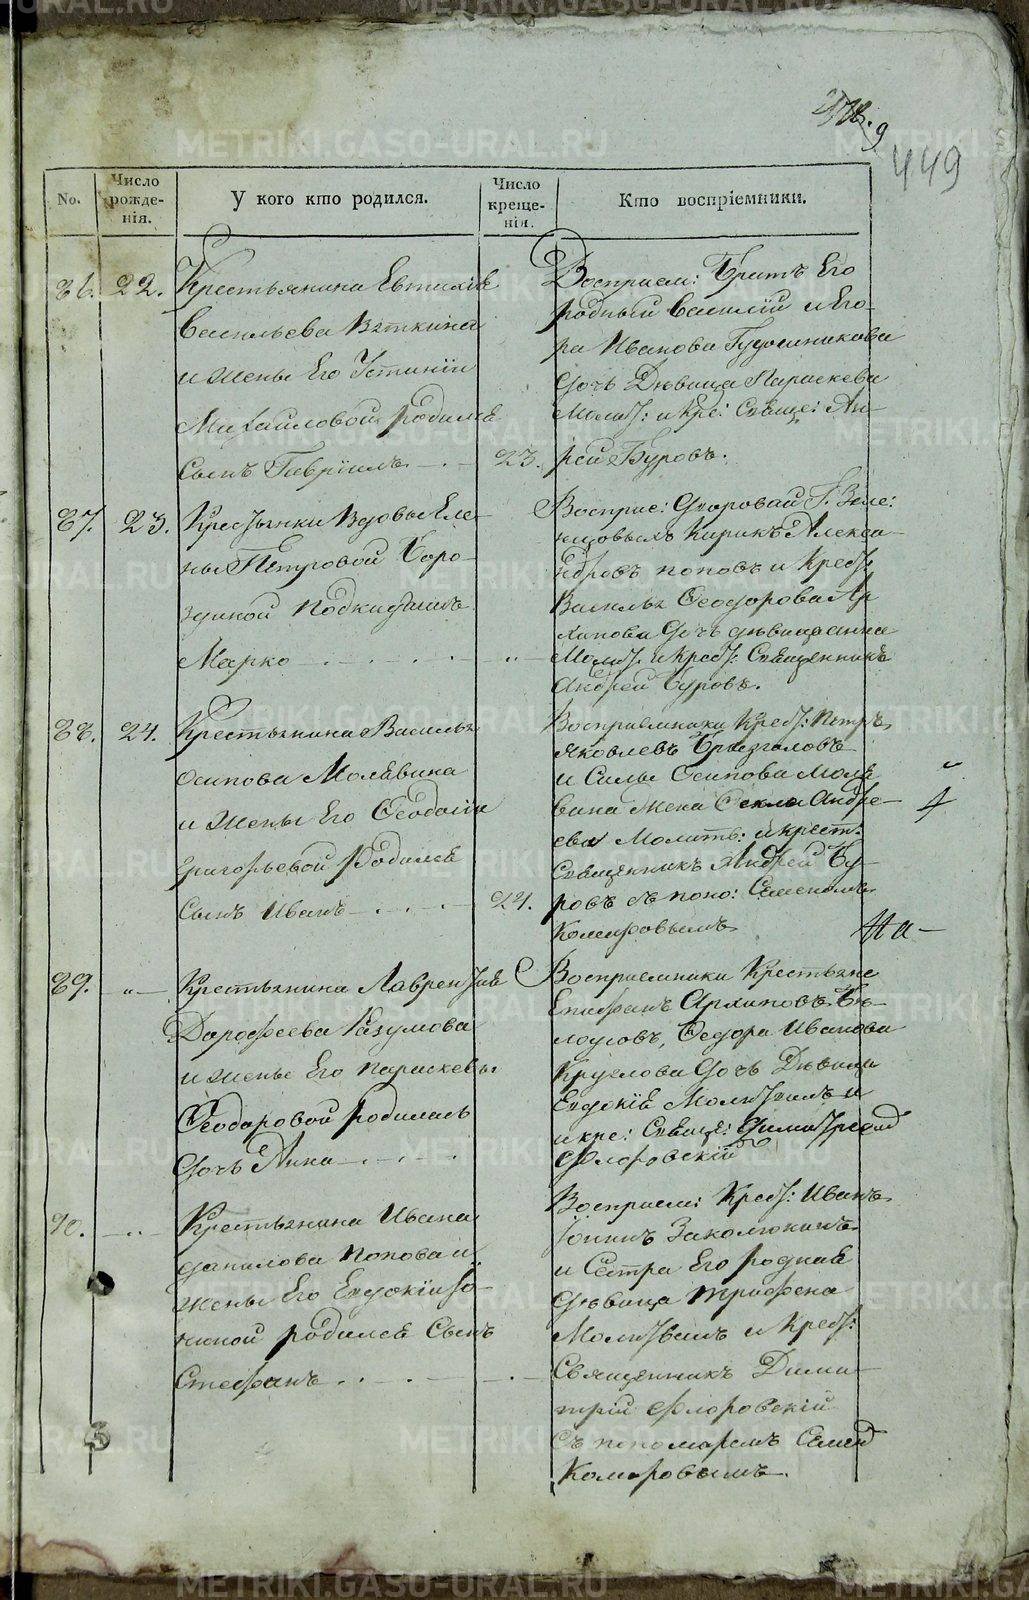 449
No.
Число рожде-нія.
У кого кто родился.
Число креще-нія.
Кто воспріемники.
86. 22.
Крестьянина Евтихіе
Васильева Вяткина
и жены Его Устиніи
Михайловой родился
Сынъ Гавріилъ 23.
Восприем: Братъ Его
родный Василій и Его
ра Иванова
дочь Дѣвица Параскева
Молит: и кре: Свяще: Ан-
рей Буровъ.
87. 23.
Крестьянки Вдовы Еле-
ны Петровой Боро-
здиной подкидышъ
Марко
Восприе:
Кирикъ Алекса-
ндровъ поповъ и Крест:
Василья Феодорова Ар
хипова дочь дѣвица анна
Молит. и Крест: Священникъ
Андрей Буровъ.
88. 24.
Крестьянина Василья
осипова Молявина
и жены Его Феодосіи
григорьевой родился
Сынъ Иванъ 24.
Восприемники Крест: Петръ
Яковлевъ Брызгаловъ
и Силы Осипова Моля
вина жена Фекла Андре-
ева Молитв: и крест:
Священникъ Андрей Бу-
ровъ съ поно: Семеномъ
Комаровымъ
89. "
Крестьянина Лаврентіе
Дорофеева Разумова
и жены Его параскевы
Феодоровой родилась
дочь Анна
Восприемники Крестьяне
Епифанъ Архиповъ Бѣ-
лоусовъ, Федора Иванова
Круглова дочь Дѣвица
Евдокіе Молитвилъ и
и кре: Свяще: Димитрей
Флоровскій
90.
Крестьянина Ивана
данилова попова и
жены Его Евдокіи Fо-
ниной родился Сынъ
Стефанъ
Восприем: Крест: Иванъ
и Сестра Его родная
дѣвица Трифена
Молитвилъ и Крест:
Священникъ Дими-
трій Флоровскій
Съ пономаремъ Семено
Комаровымъ
METRIKI.GASO-URAL.RU